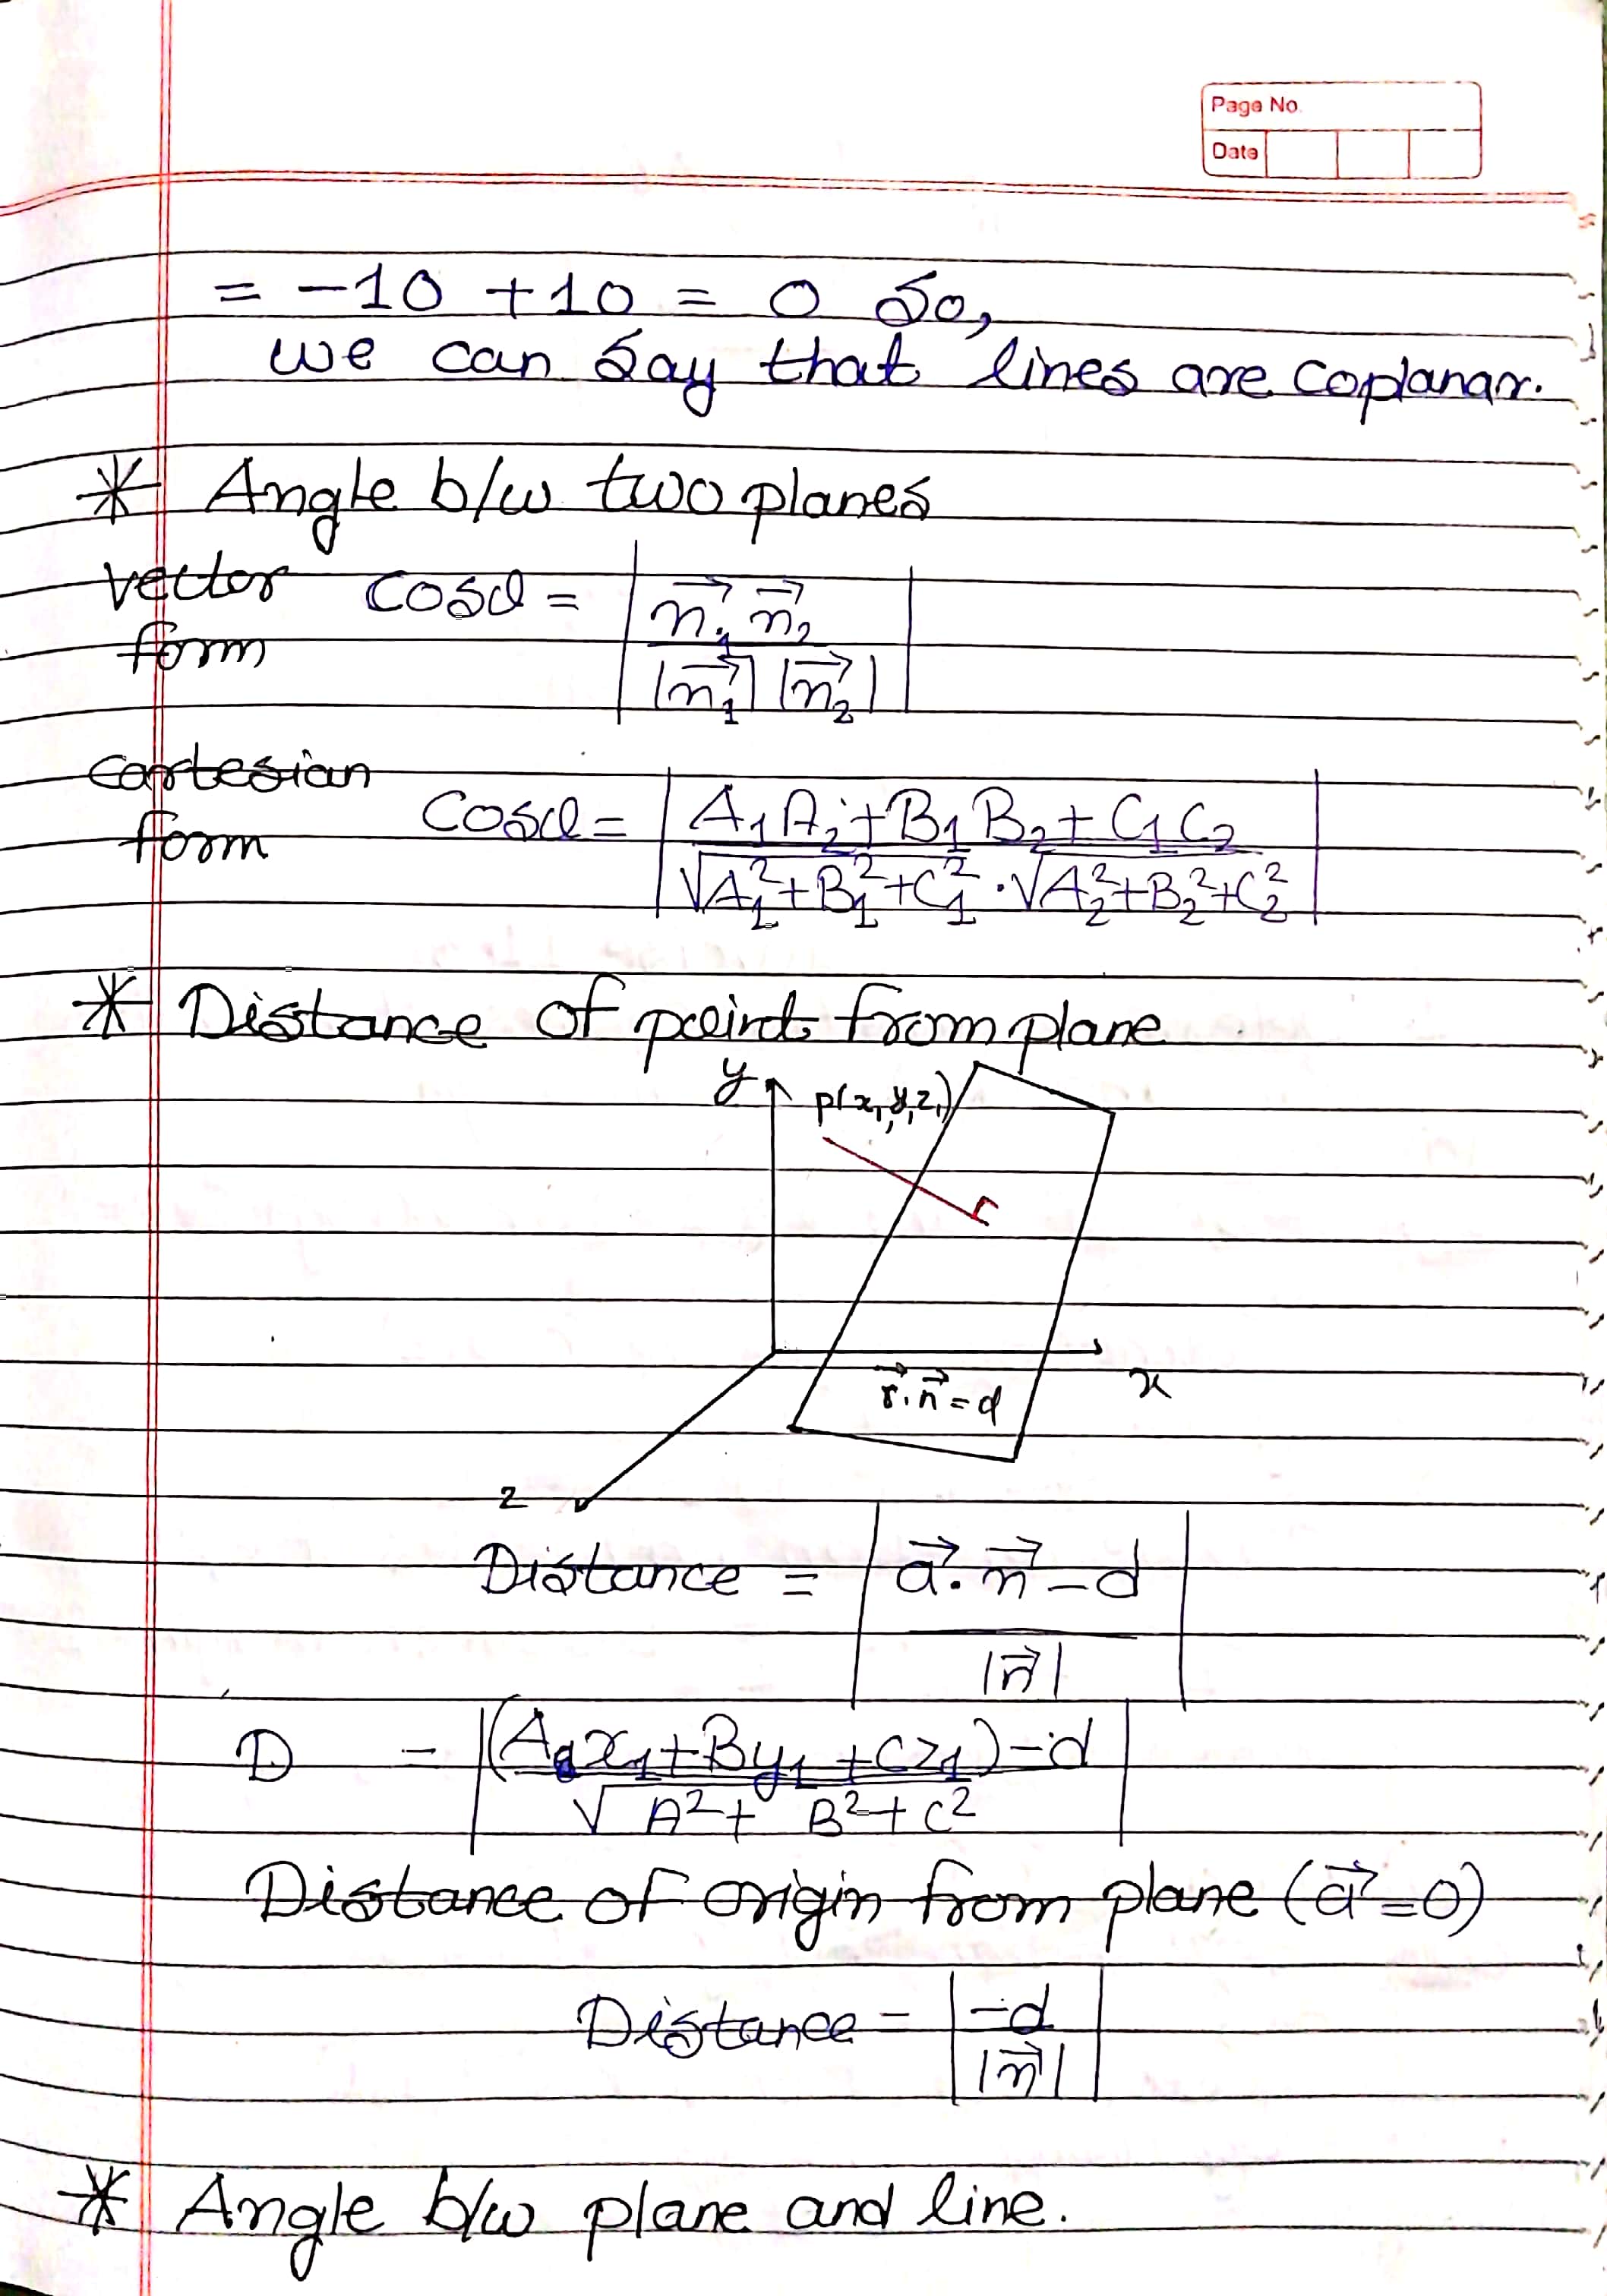 Page No.
Date
= -10 + 10 = 0 So,
we can say that lines are coplanar.
* Angle b/w two planes
vector form cosθ = | n⃗₁.n⃗₂ / |n⃗₁| |n⃗₂| |
cartesian form cosθ = | A₁A₂ + B₁B₂ + C₁C₂ / √A₁²+B₁²+C₁² . √A₂²+B₂²+C₂² |
* Distance of point from plane
y
P(x₁,y₁,z₁)
x
r⃗.n⃗ = d
z
Distance = | a⃗.n⃗ - d / |n⃗| |
D = | (Ax₁+By₁+Cz₁)-d / √A²+B²+C² |
Distance of origin from plane (a⃗=0)
Distance = | -d / |n⃗| |
* Angle b/w plane and line.